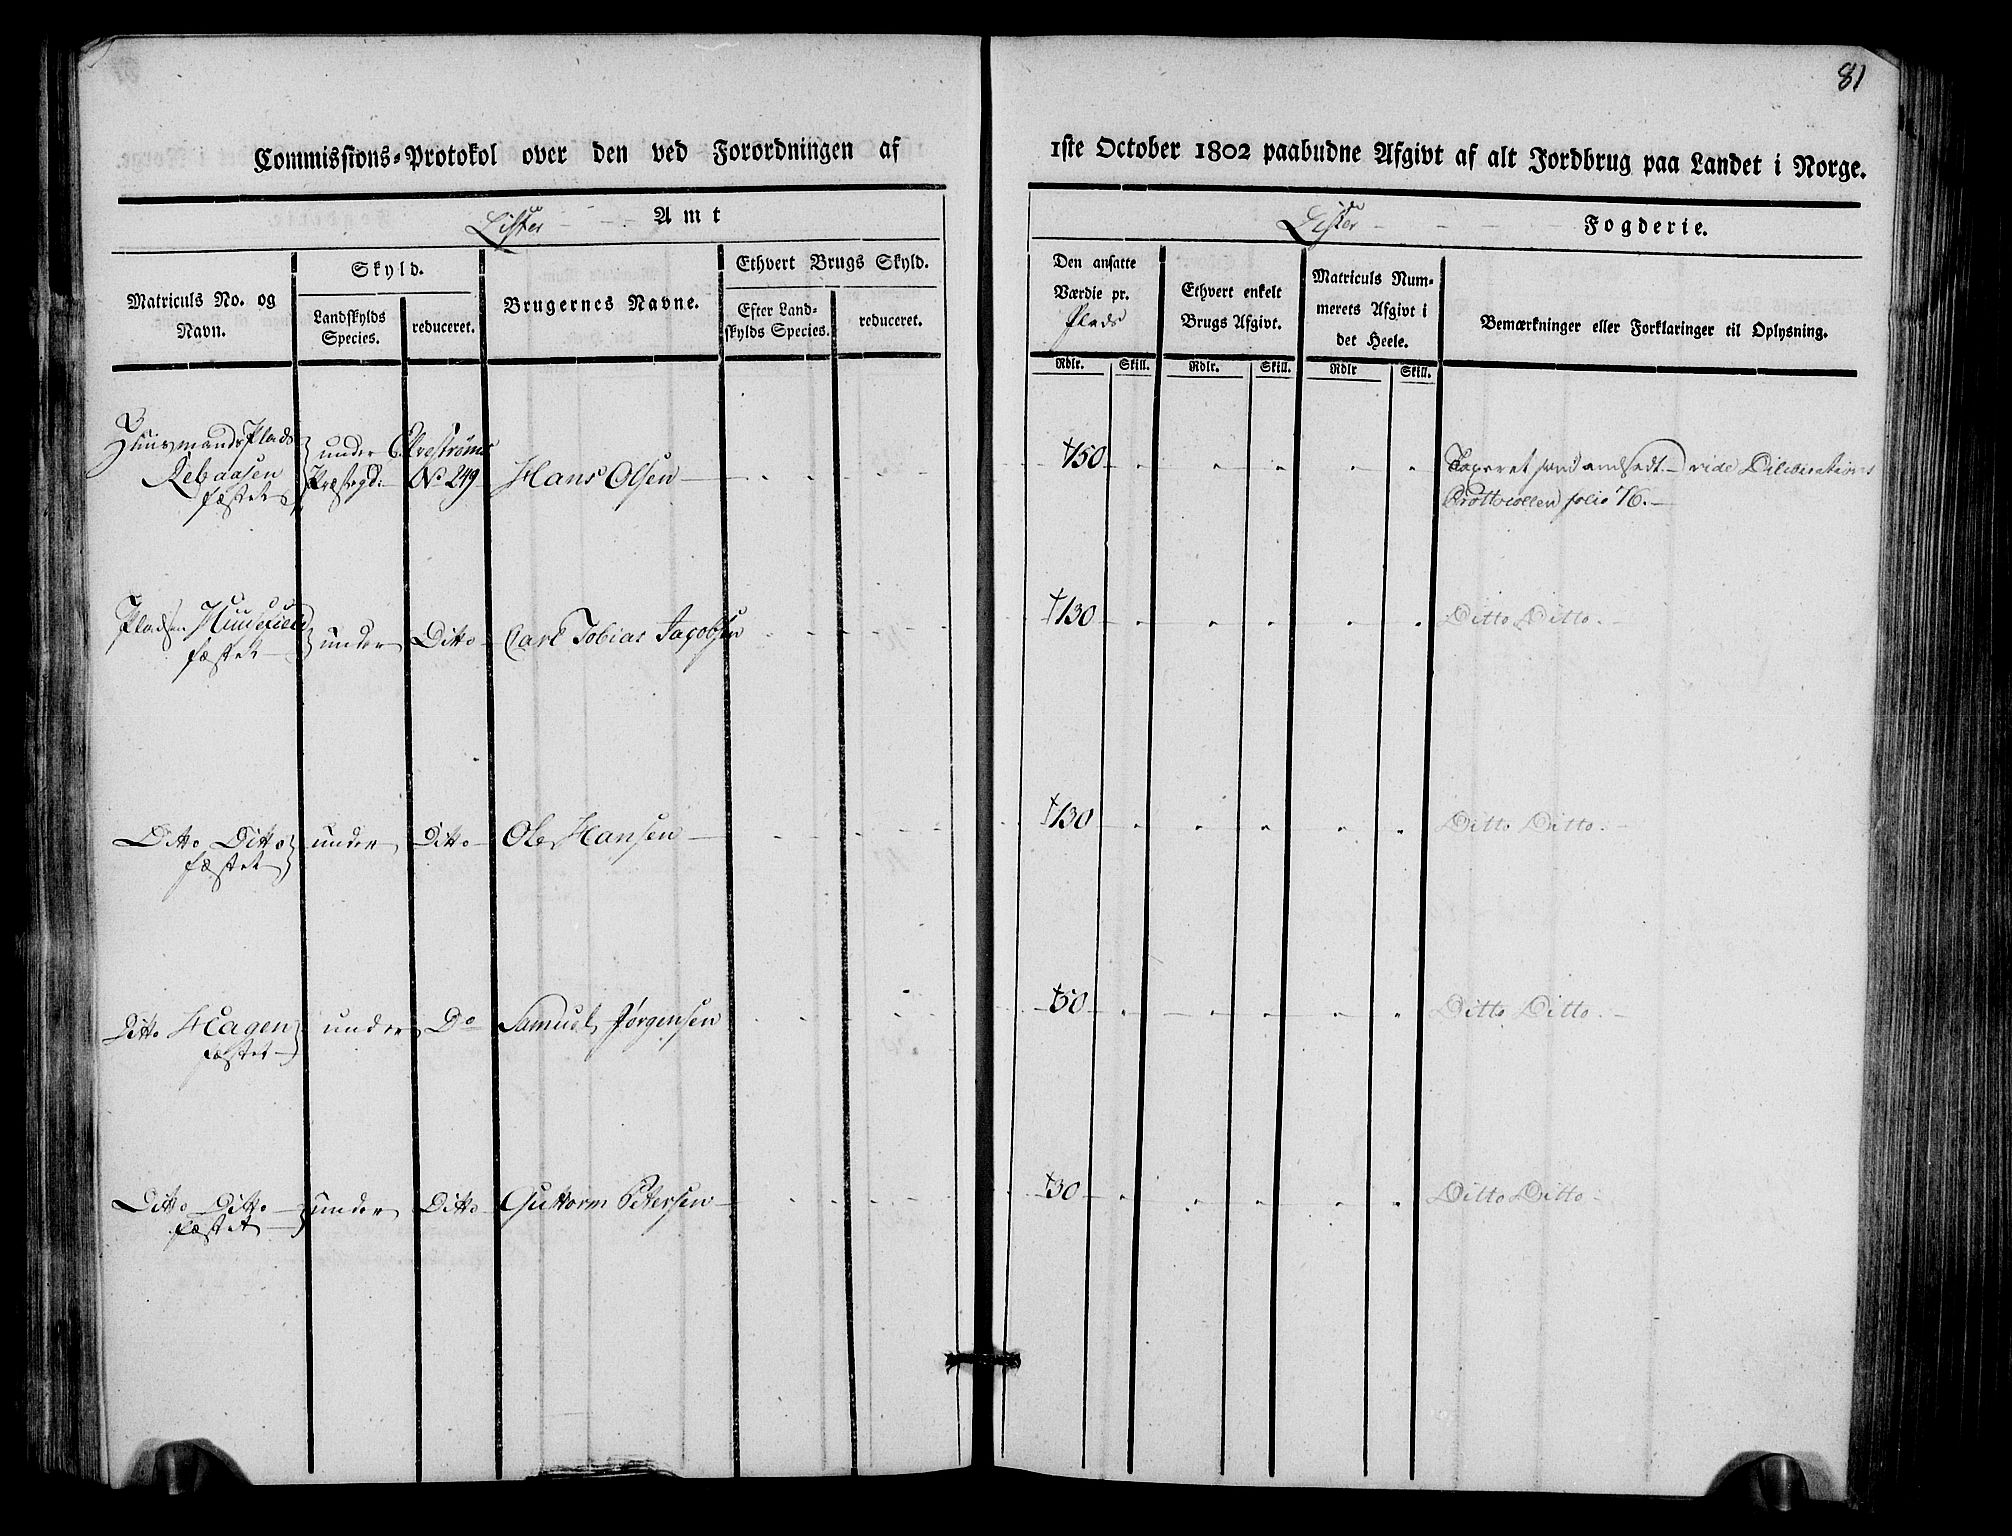 81
Commissions-Protokol over den ved Forordningen af 1ste October 1802 paabudne Afgivt af alt Jordbrug paa Landet i Norge.
Lister Amt
Lister Fogderie.
Matriculs No. og Navn.
Skyld.
Landskylds Species.
reduceret.
Brugernes Navne.
Ethvert Brugs Skyld.
Efter Landskylds Species.
reduceret.
Den ansatte Værdie pr. Plads
Ethvert enkelt Brugs Afgivt.
Matriculs Nummerets Afgivt i det Heele.
Bemærkninger eller Forklaringer til Oplysning.
Rdlr. Skill. Rdlr. Skill. Rdlr Skill.
Huusmands Plads under
Rebaasen Præstegd: No 249 Hans Olsen 150
fæstet
Taxeret som andsadt vide Diliberations
Prottocollen folio 76.
Pladsen under Ditto Carl Tobias Jacobsen 130 Ditto Ditto.
fæstet
Ditto Ditto under Ditto Ole Hansen 130 Ditto Ditto.
fæstet
Ditto Hagen under Do Samuel Jørgensen 50 Ditto Ditto.
fæstet
Ditto Ditto under Ditto Guttorm Petersen 30 Ditto Ditto
fæstet